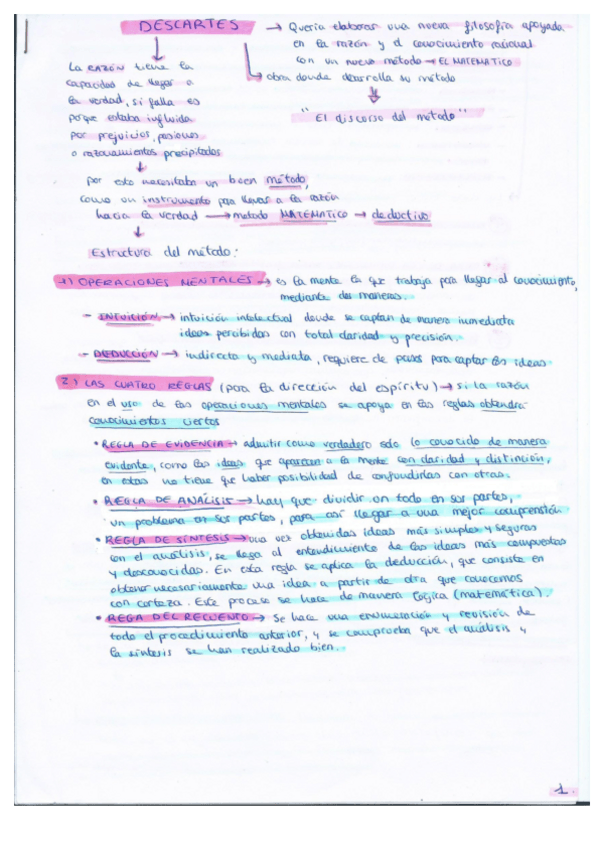 DESCARTES → Quería elaborar una nueva filosofía apoyada
en la razón y el conocimiento racional
con un nuevo método → EL MATEMÁTICO
La RAZÓN tiene la
capacidad de llegar a
la verdad, si falla es
porque estaba influida
por prejuicios, pasiones
o razonamientos precipitados
obra donde desarrolla su método
"El discurso del método"
por esto necesitaba un buen método,
como un instrumento para llevar a la razón
hacia la verdad → metodo MATEMÁTICO → deductivo
Estructura del método:
1) OPERACIONES MENTALES → es la mente la que trabaja para llegar al conocimiento,
mediante dos maneras.
- INTUICIÓN → intuición intelectual donde se captan de manera inmediata
ideas percibidas con total claridad y precisión.
- DEDUCCIÓN → indirecta y mediata, requiere de pasos para captar las ideas.
2) LAS CUATRO REGLAS (para la dirección del espíritu) → si la razón
en el uso de las operaciones mentales se apoya en las reglas obtendrá
conocimientos ciertos
• REGLA DE EVIDENCIA → admitir como verdadero solo lo conocido de manera
evidente, como las ideas que aparecen a la mente con claridad y distinción,
en estas no tiene que haber posibilidad de confundirlas con otras.
• REGLA DE ANÁLISIS → hay que dividir un todo en sus partes,
un problema en sus partes, para así llegar a una mejor comprensión
• REGLA DE SÍNTESIS → una vez obtenidas ideas más simples y seguras
con el análisis, se llega al entendimiento de las ideas más compuestas
y desconocidas. En esta regla se aplica la deducción, que consiste en
obtener necesariamente una idea a partir de otra que conocemos
con certeza. Este proceso se hace de manera lógica (matemática).
• REGA DEL RECUENTO → Se hace una enumeración y revisión de
todo el procedimiento anterior, y se comprueba que el análisis y
la síntesis se han realizado bien.
1